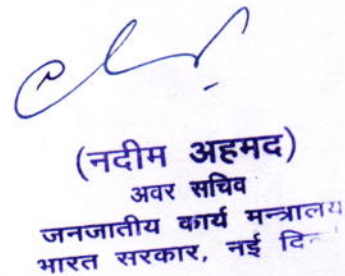 (नदीम अहमद)
अवर सचिव
जनजातीय कार्य मन्त्रालय
भारत सरकार, नई